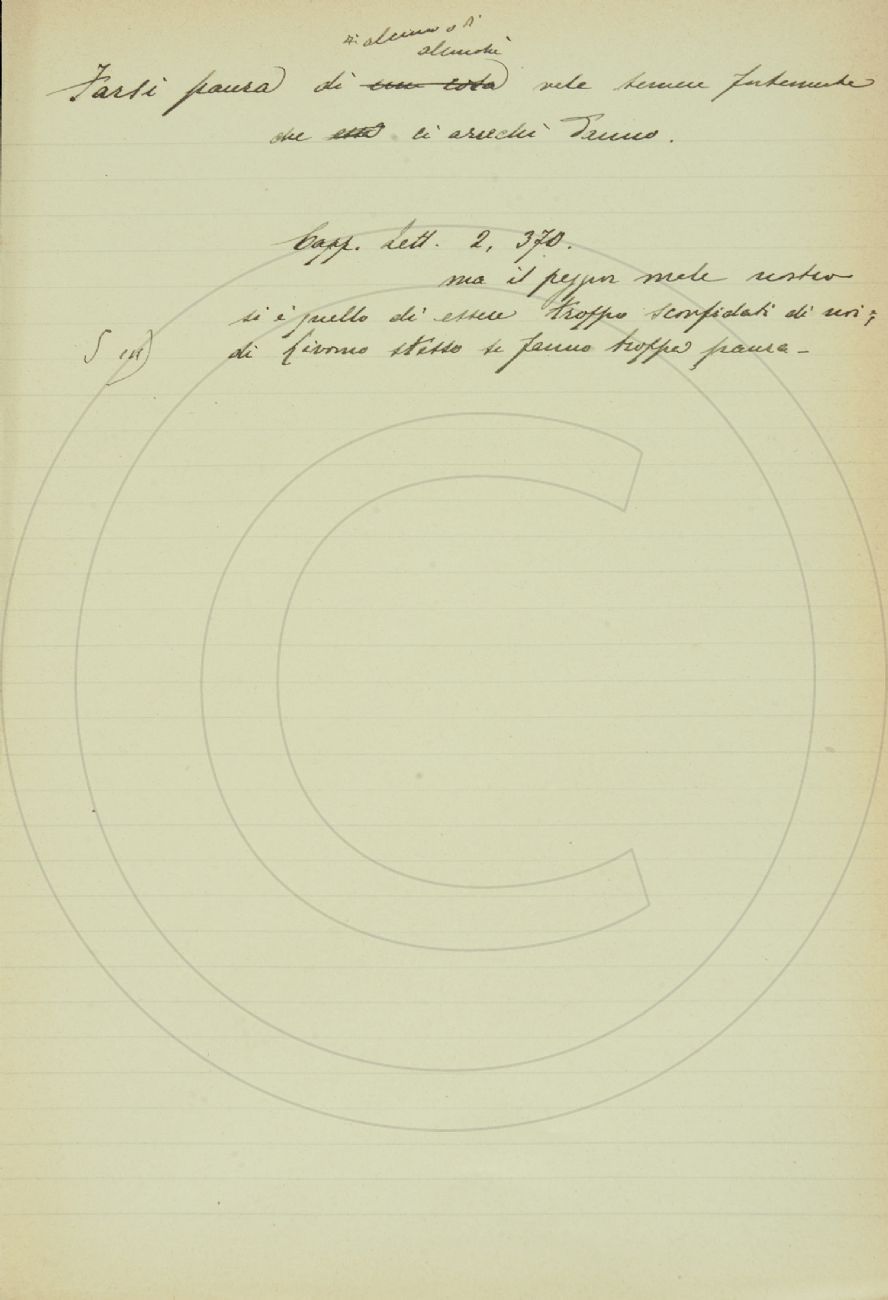 di alcuno o di
alcunchè
Farsi paura di una cosa vale temere fortemente
che essa ci arrechi danno.
Capp. Lett. 2, 370.
ma il peggior male nostro
si è quello di essere troppo sconfidati di noi;
di Livorno stesso si fanno troppa paura -